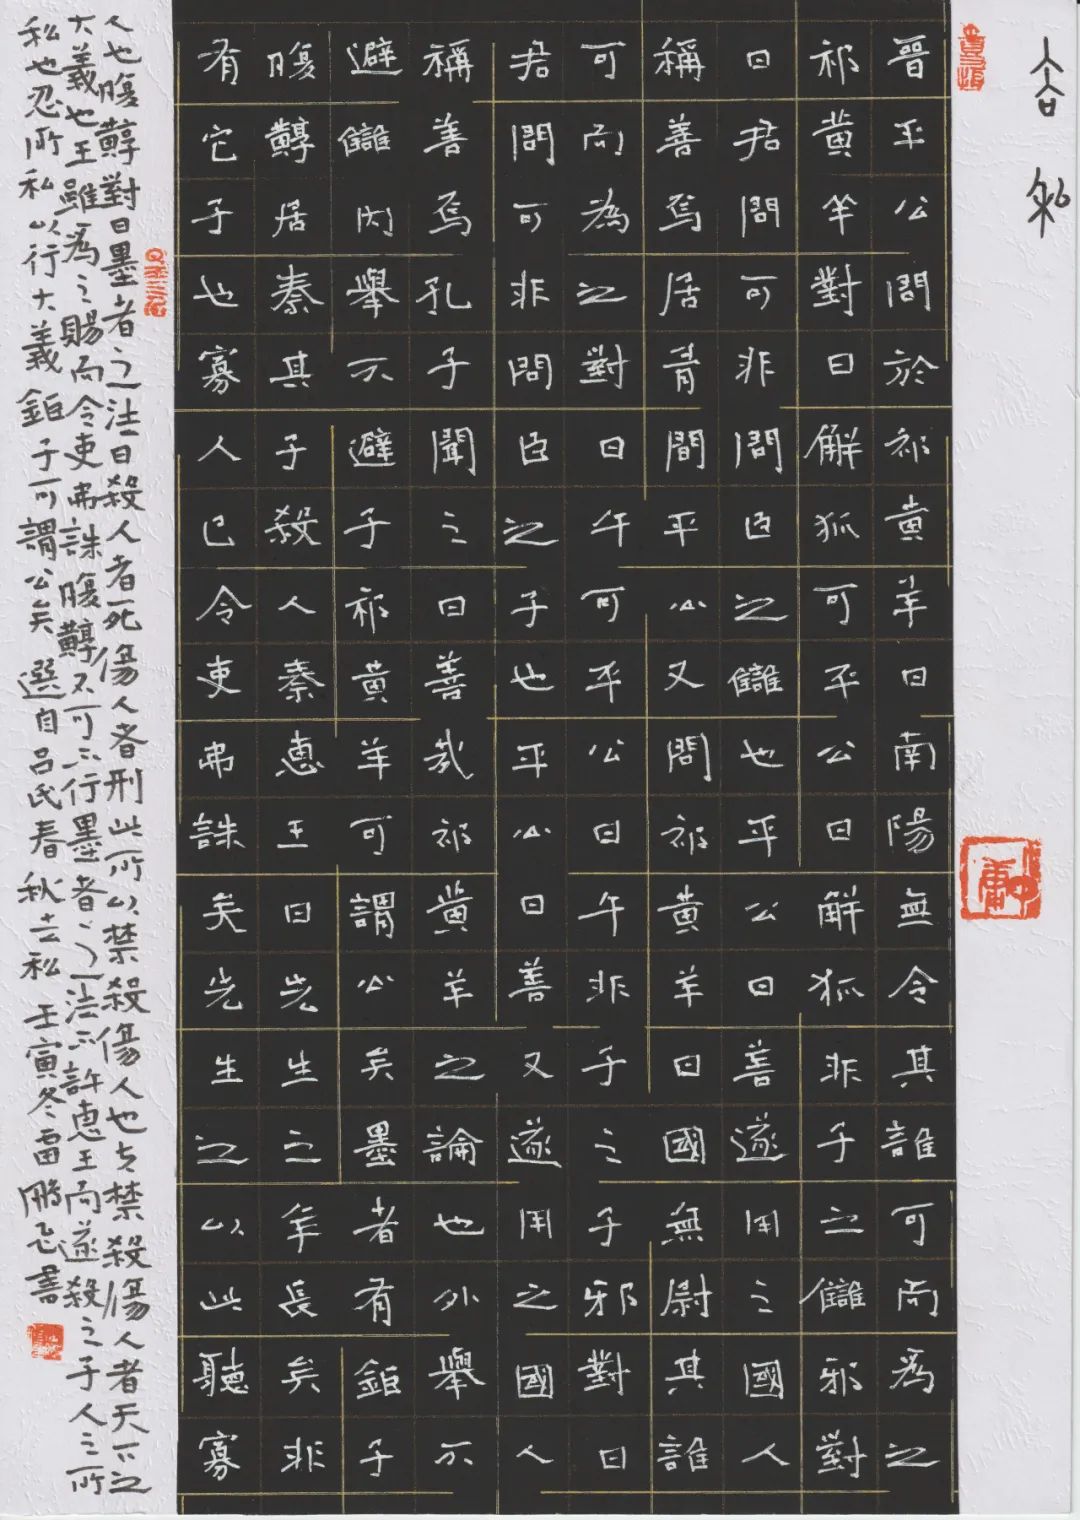 去私
晉平公問於祁黃羊曰南陽無令其誰可而為之
祁黃羊對曰解狐可平公曰解狐非子之讎邪對
曰君問可非問臣之讎也平公曰善遂用之國人
稱善焉居有間平公又問祁黃羊曰國無尉其誰
可而為之對曰午可平公曰午非子之子邪對曰
君問可非問臣之子也平公曰善又遂用之國人
稱善焉孔子聞之曰善哉祁黃羊之論也外舉不
避讎內舉不避子祁黃羊可謂公矣墨者有鉅子
腹䵍居秦其子殺人秦惠王曰先生之年長矣非
有它子也寡人已令吏弗誅矣先生之以此聽寡
人也腹䵍對曰墨者之法曰殺人者死傷人者刑此所以禁殺傷人也夫禁殺傷人者天下之
大義也王雖為之賜而令吏弗誅腹䵍不可不行墨者之法不許惠王而遂殺之子人之所
私也忍所私以行大義鉅子可謂公矣 選自呂氏春秋去私 壬寅冬雷鵬飛書